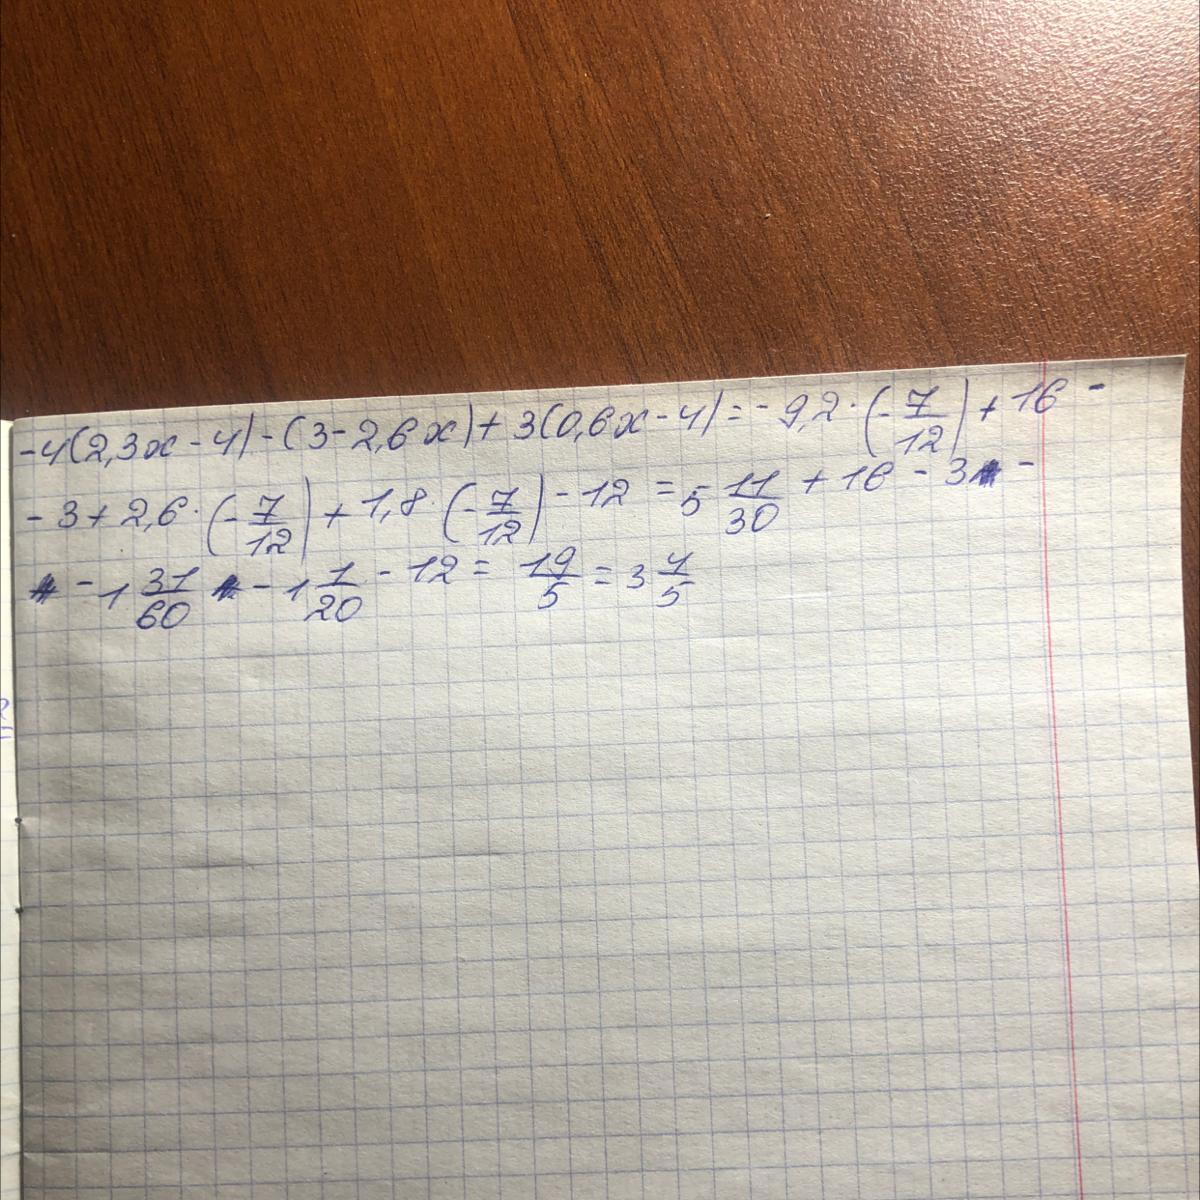 -4(2,3x-4)-(3-2,6x)+3(0,6x-4)=-9,2·(-7/12)+16-
-3+2,6·(-7/12)+1,8·(-7/12)-12=5 11/30+16-3-
-1 31/60-1 1/20-12=19/5=3 4/5